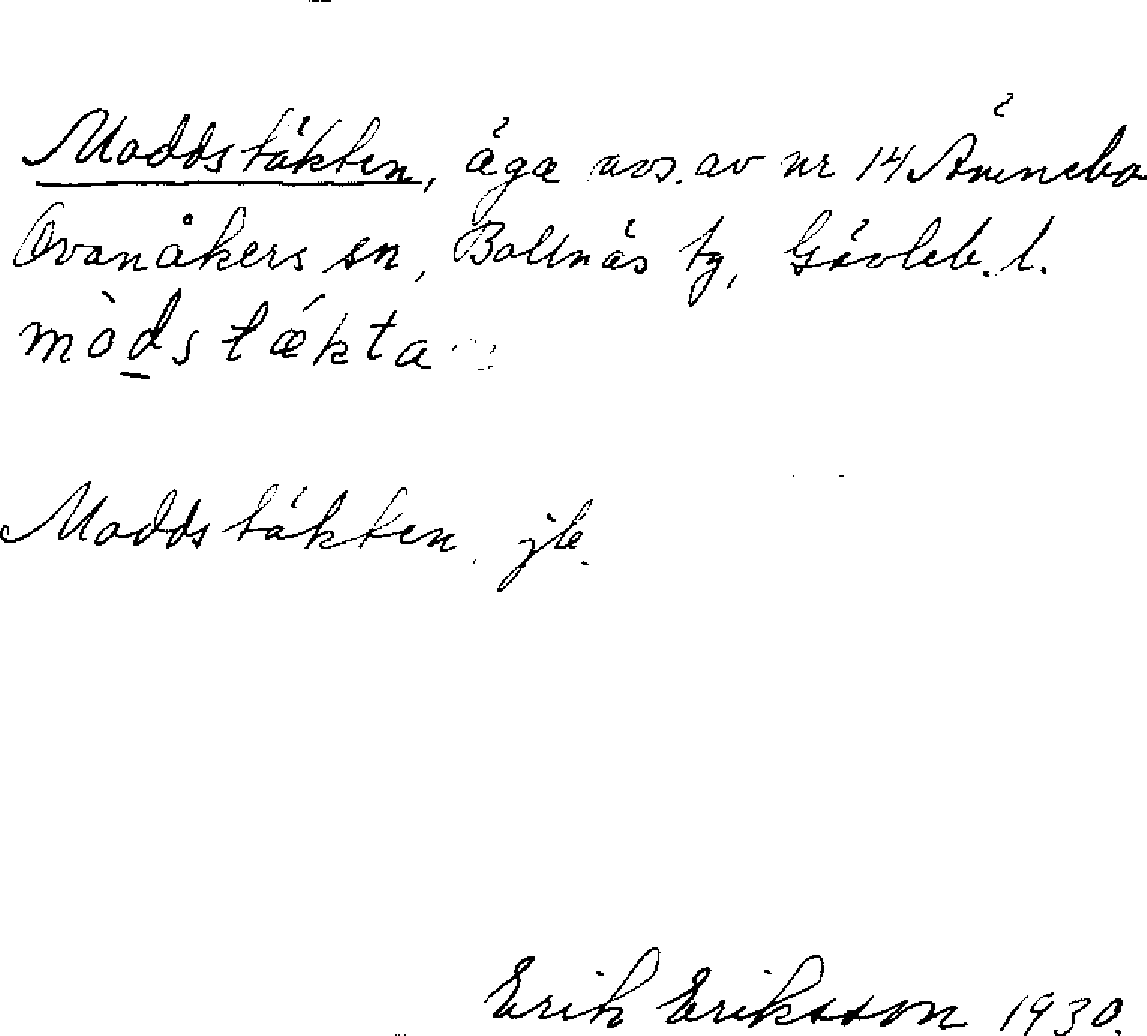 Moddstäkten, äga nos. av nr 14 Ämnebo
Ovanåkers sn, Bollnäs tg, Gävleb. l.
mòdstækta
Moddstäkten. jb.
Erik Eriksson 1930.